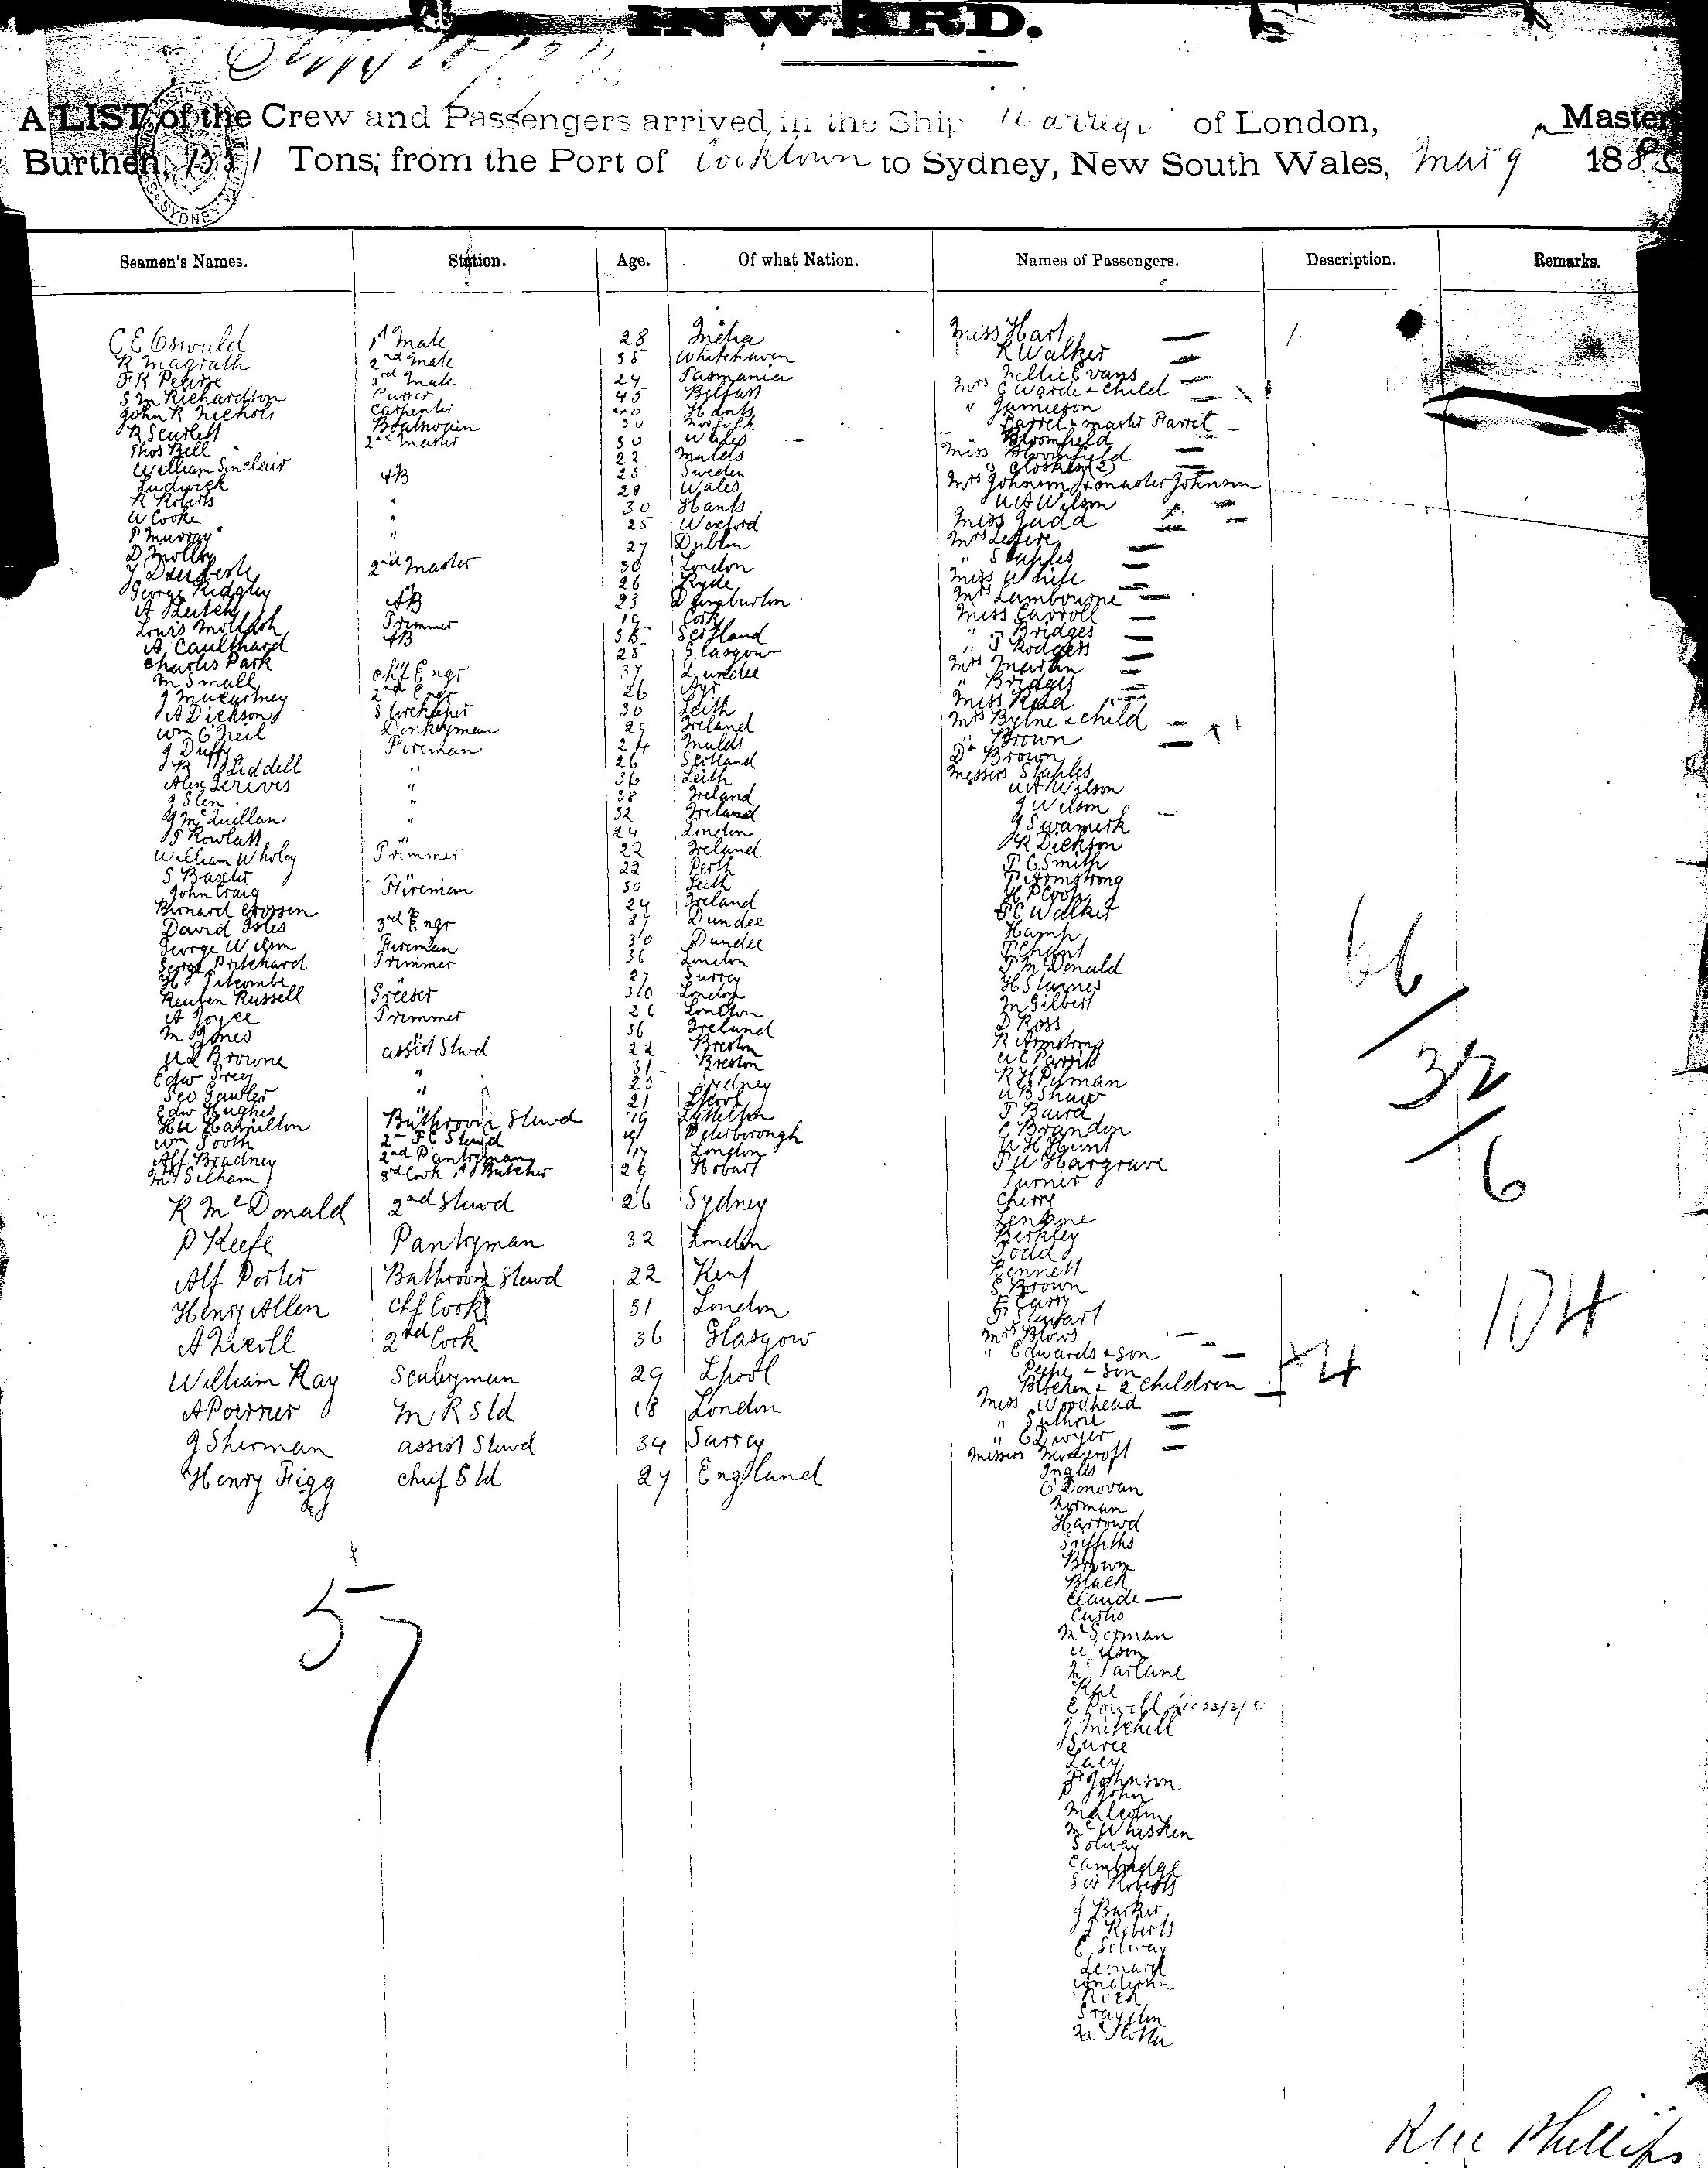 INWARD.
A LIST of the Crew and Passengers arrived in the Ship Warrego of London, Master
Burthen, Tons, from the Port of Cooktown to Sydney, New South Wales, Mar 9 188
Seamen's Names. Station. Age. Of what Nation. Names of Passengers. Description. Remarks.
C E Oswald 1st Mate 28 India Miss Hart
R Magrath 2nd Mate 35 Whitehaven R Walker
F R Pearse 3rd Mate 24 Tasmania Nellie Evans
S M Richardson Purser 45 Belfast Mrs E Warde & child
John R Nichols Carpenter 40 Hants " Jamieson
R Scurlett Boatswain 30 Norfolk Farrel & master Farrel
Thos Bell 2nd master 30 Wales Bloomfield
William Sinclair 22 Miss Bloomfield
Ludwick AB 25 Sweden (2)
R Roberts " 28 Wales Mrs Johnson & master Johnson
W Cooke " 30 Hants W A Wilson
P Murray " 25 Wexford Miss Judd
D Molloy " 27 Dublin Mrs
2nd Master 30 London " Staples
George Ridgley " 26 Ryde Miss White
A Leitch AB 23 Dumbarton Mrs Lambourne
Louis Trimmer 19 Cork Miss Carroll
A Caulthard AB 35 Scotland " Bridges
Charles Park " 25 Glasgow " J Rodgers
M Small chf Engr 37 Dundee Mrs Martin
J Macartney 2nd Engr 26 Ayr " Bridges
A Dickson Storekeeper 30 Leith Miss Read
Wm O'Neil Donkeyman 29 Ireland Mrs Byrne & child
J Duffy Fireman 24 " Brown
J B Liddell " 26 Scotland Dr Brown
Alex " 36 Leith Messrs Staples
J Slen " 38 Ireland W A Wilson
J McQuillan " 32 Ireland J Wilson
J Rowlatt " 24 London J Swamerk
William Wholey Trimmer 22 Ireland R Dickson
S Baxter " 22 Perth T C Smith
John Craig Fireman 30 Leith T Armstrong
Bernard Crossen " 24 Ireland H P Coop
David Isles 3rd Engr 27 Dundee F C Walker
George Wilson Fireman 30 Dundee Hamp
George Pritchard Trimmer 36 London T Chant
H J Titcombe " 27 Surrey T McDonald
Reuben Russell Greeser 30 London H Staines
A Joyce Trimmer 26 London M Gilbert
M Jones " 36 Ireland D Ross
W L Browne assist Stwd 22 Breston R Armstrong
Edw Grey " 31 Breston W C Parrid
Geo Gawler " 25 Sydney R H Pitman
Edw Hughes " 21 Lpool W B Shaw
H W Hamilton Bathroom Stwd 19 Lyttelton T Baird
Wm Tooth 2nd F C Stwd 19 Peterborough C Brandon
Alf Bradney 2nd Pantryman 17 London W H Hunt
M Silham 3rd Cook & Butcher 26 Hobart T W Hargrave
Turner
R McDonald 2nd Stwd 26 Sydney Cherry
Lenane
P Keefe Pantryman 32 London Berkley
Todd
Alf Porter Bathroom Stwd 22 Kent Bennett
S Brown
Henry Allen chf Cook 31 London F Carry
F Stewart
A Nicoll 2nd Cook 36 Glasgow Mrs Blows
" Edwards & son
William Ray Sculryman 29 Lpool Pepe & son
Blochen & 2 children
A Pourner M R Std 18 London Miss Woodhead
" Suthre
J Sherman assist Stwd 34 Surrey " E Dwyer
Messrs Moscroft
Henry Figg chief Std 27 England Inglis
O'Donovan
Norman
Harrowd
Griffiths
Brown
Black
Claude
Curtis
McGorman
Wilson
McFarlane
Rae
E Powell
J Mitchell
Suree
Lacy
F Johnson
P John
Malcolm
McWhisken
Solway
Cambridge
S A Roberts
J Barker
J Roberts
E Solway
Leonard
Anderson
Rick
Graydon
57
66
32
6
104
+4
Phillips